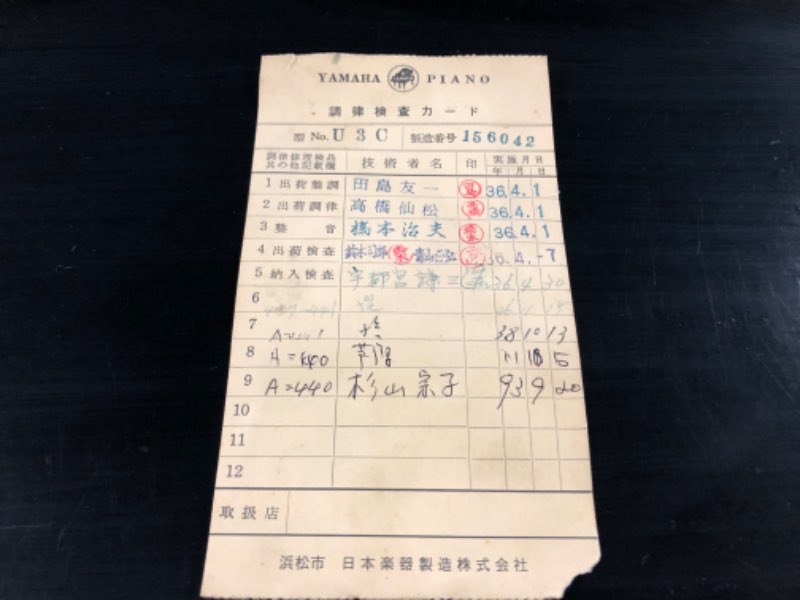 YAMAHA PIANO
調律検査カード
型 No. U3C 製造番号 156042
調律修理検品其の他記載欄 技術者名 印 実施月日 年 月 日
1 出荷整調 田島友一 36.4.1
2 出荷調律 高橋仙松 36.4.1
3 整音 橋本治夫 36.4.1
4 出荷検査 36.4.-7
5 納入検査 宇都宮謙三 36 4 30
6
7 38 10 13
8 A=440 11 5
9 A=440 杉山宗子 93 9 20
10
11
12
取扱店
浜松市 日本楽器製造株式会社